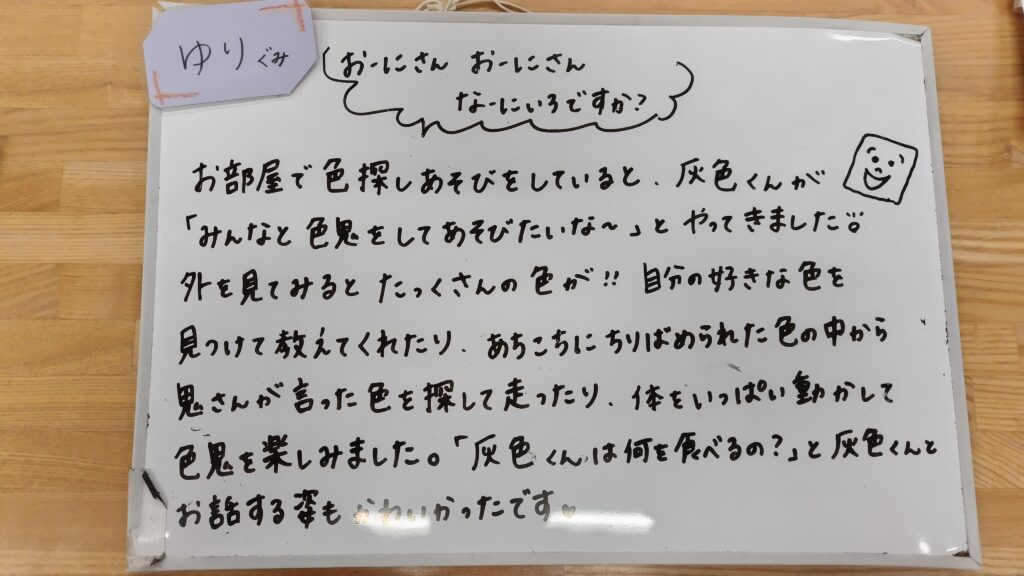 ゆりぐみ
おーにさん おーにさん
なーにいろですか?
お部屋で色探しあそびをしていると、灰色くんが
「みんなと色鬼をしてあそびたいな〜」とやってきました
外を見てみるとたっくさんの色が!! 自分の好きな色を
見つけて教えてくれたり、あちこちにちりばめられた色の中から
鬼さんが言った色を探して走ったり、体をいっぱい動かして
色鬼を楽しみました。「灰色くんは何を食べるの?」と灰色くんと
お話する姿もかわいかったです♥